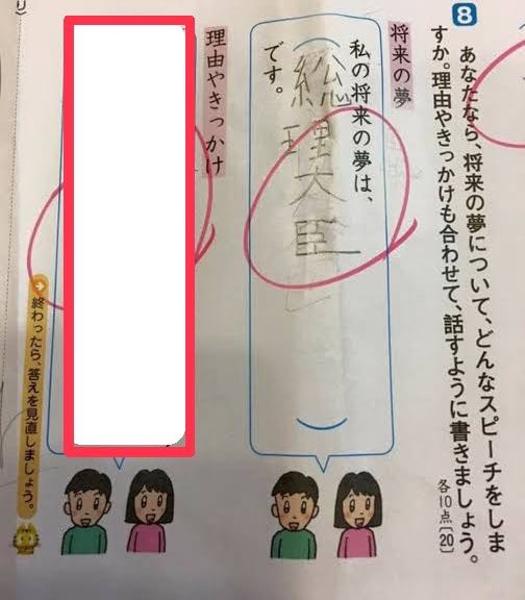 8
あなたなら、将来の夢について、どんなスピーチをしま
すか。理由やきっかけも合わせて、話すように書きましょう。
各10点〔20〕
将来の夢
私の将来の夢は、
（総理大臣）
です。
理由やきっかけ
終わったら、答えを見直しましょう。